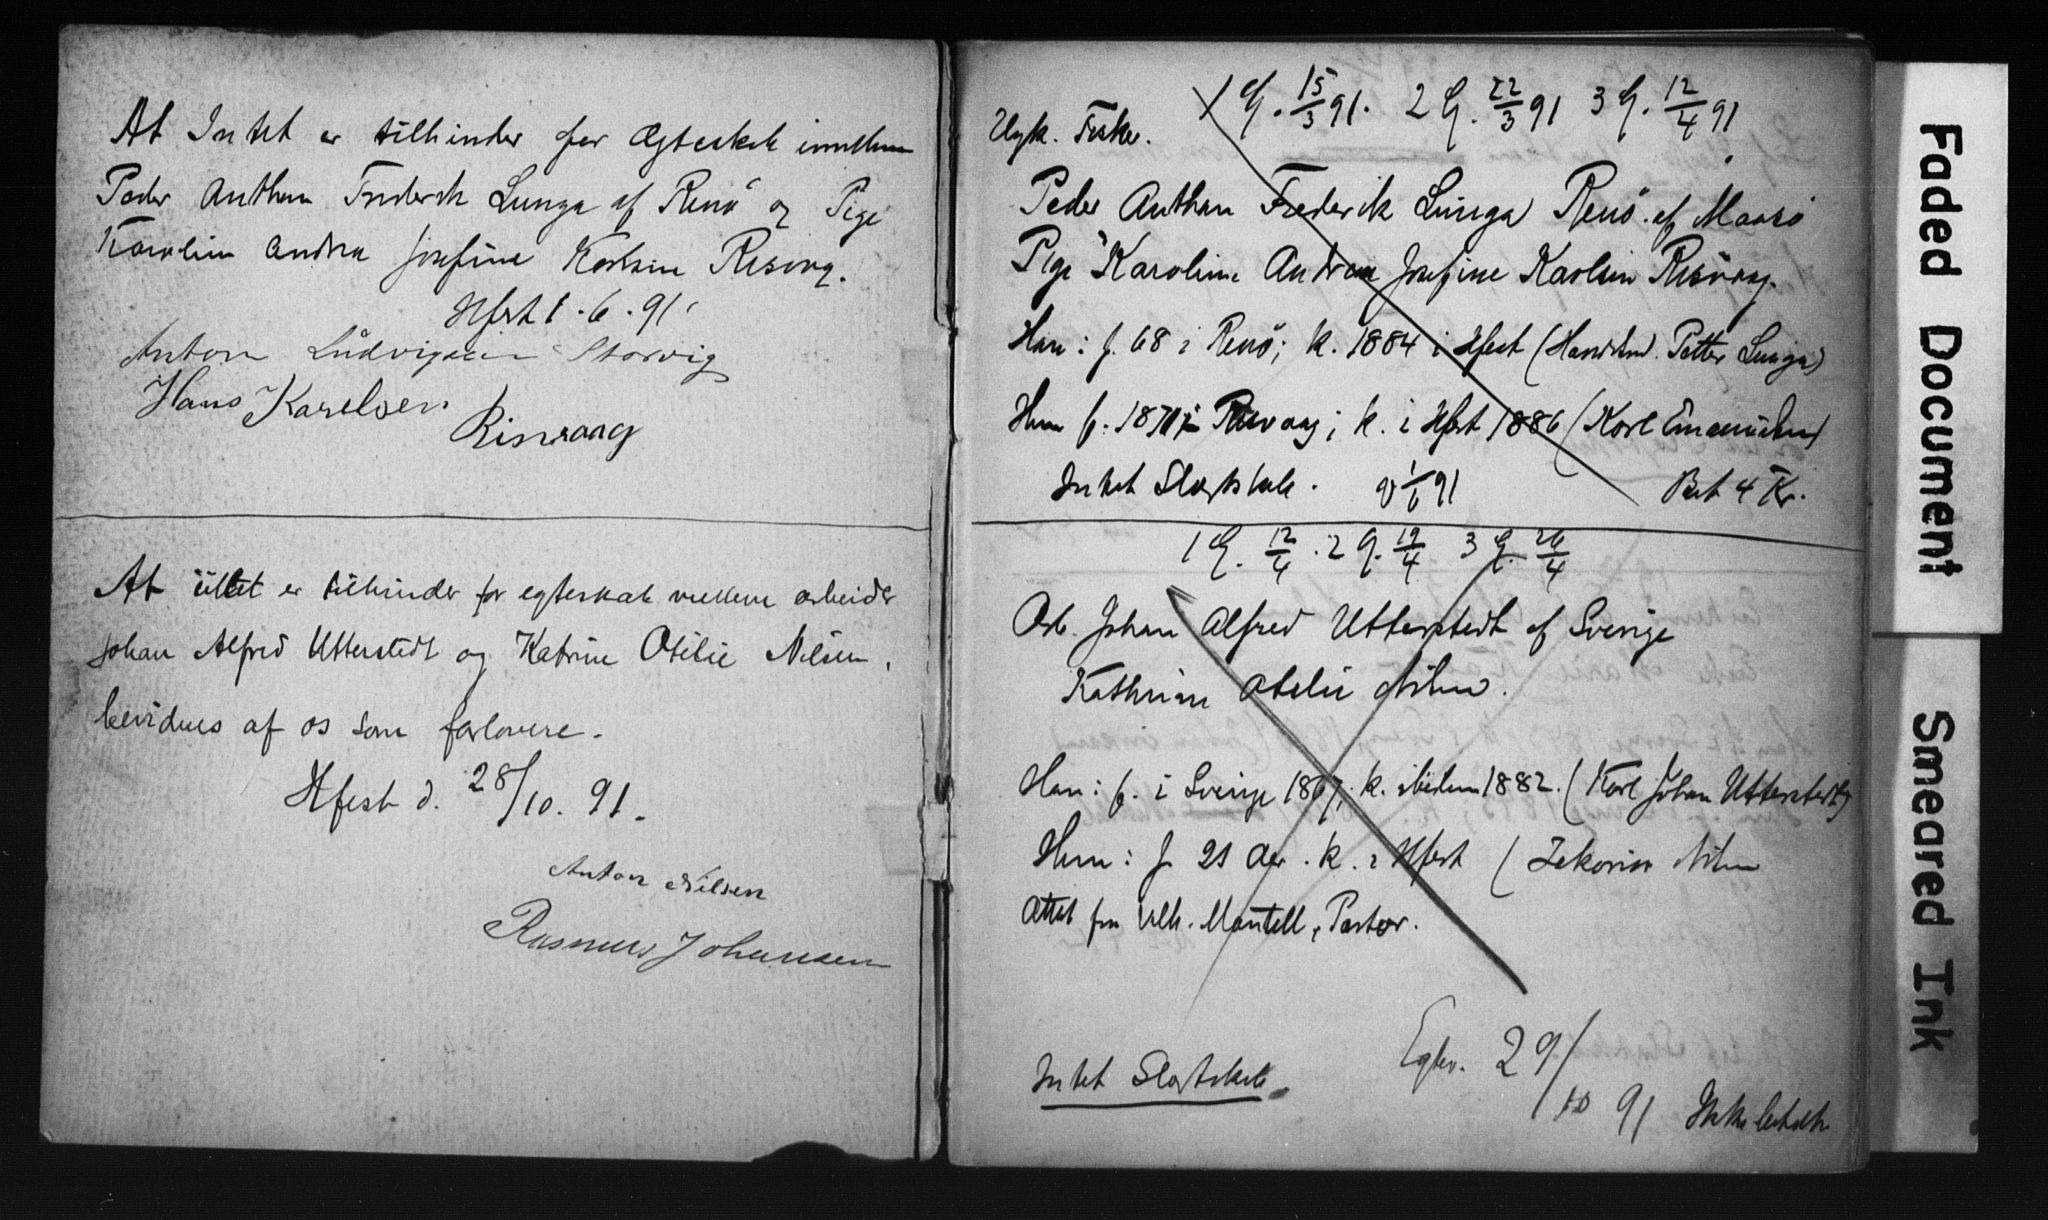 At Intet er tilhinder for Ægteskab imellem
Peder Anthon Frederik Lunga af Renö og Pige
Karoline Andrea Josefine Karlsen Risvag.
Hfest 1.6.91.
Anton Ludvigsen Storvig
Hans Karelsen
Risvaag
At intet er tilhinder for egteskab mellem arbeider
Johan Alfred Utterstedt og Katrine Otilie Nilsen,
bevidnes af os som forlovere.
Hfest d. 28/10. 91.
Anton Nilsen
Rasmus Johansen
1 G. 15/3 91. 2 G. 22/3 91 3 G. 12/4 91
Ungk. Fisker.
Peder Anthon Frederik Lunga Renö af Maasö
Pige Karoline Andrea Josefine Karlsen Risvaag.
Han: f. 68 i Renö; k. 1884 i Hfest ( Petter Lunga)
Hun f. 1870 i Risvaag; k. i Hfest 1886 (Karl Emanuelsen)
Intet Slægtskab. V 1/6 91 Bet 4 Kr.
1 G. 12/4. 2 G. 19/4 3 G. 26/4
Arb. Johan Alfred Utterstedt af Sverige
Kathrine Otelie Nilsen.
Han: f. i Sverige 1867; k. ibidem 1882. (Karl Johan Utterstedt)
Hun: f 21 Aar. k. i Hfest (Zakarias Nilsen
Attest fra Vilh. Mantell, Pastor.
Intet Slægtskab.
Egtev. 29/10 91 Ikke betalt
Faded Document
Smeared Ink